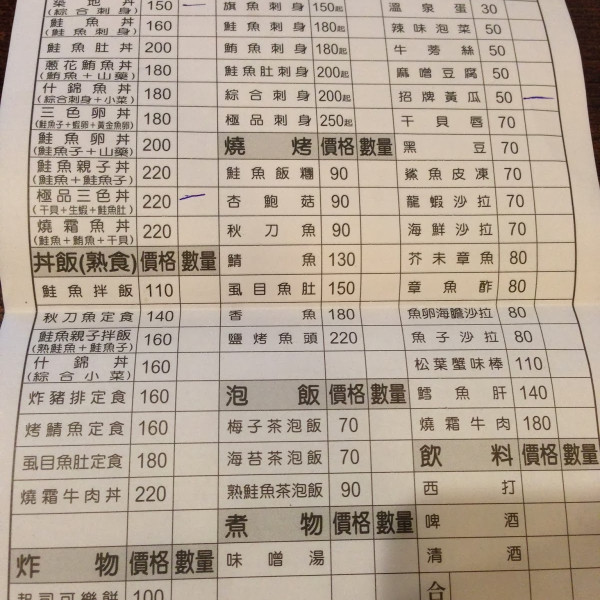 築地丼 150
(綜合刺身)
鮭魚丼 160
(鮭魚刺身)
鮭魚肚丼 200
蔥花鮪魚丼 180
(鮪魚+山藥)
什錦魚丼 180
(綜合刺身+小菜)
三色卵丼 180
(鮭魚子+蝦卵+黃金魚卵)
鮭魚卵丼 200
(鮭魚子+山藥)
鮭魚親子丼 220
(鮭魚+鮭魚子)
極品三色丼 220
(干貝+生蝦+鮭魚肚)
燒霜魚丼 220
(鮭魚+鮪魚+干貝)
丼飯(熟食) 價格 數量
鮭魚拌飯 110
秋刀魚定食 140
鮭魚親子拌飯 160
(熟鮭魚+鮭魚子)
什錦丼 160
(綜合小菜)
炸豬排定食 160
烤鯖魚定食 160
虱目魚肚定食 180
燒霜牛肉丼 220
炸物 價格 數量
起司可樂餅 100
旗魚刺身 150起
鮭魚刺身 180起
鮪魚刺身 180起
鮭魚肚刺身 200起
綜合刺身 200起
極品刺身 250起
燒烤 價格 數量
鮭魚飯糰 90
杏鮑菇 90
秋刀魚 90
鯖魚 130
虱目魚肚 150
香魚 180
鹽烤魚頭 220
泡飯 價格 數量
梅子茶泡飯 70
海苔茶泡飯 70
熟鮭魚茶泡飯 90
煮物 價格 數量
味噌湯
溫泉蛋 30
辣味泡菜 50
牛蒡絲 50
麻噌豆腐 50
招牌黃瓜 50
干貝唇 70
黑豆 70
鯊魚皮凍 70
龍蝦沙拉 70
海鮮沙拉 70
芥末章魚 80
章魚酢 80
魚卵海膽沙拉 80
魚子沙拉 80
松葉蟹味棒 110
鱈魚肝 140
燒霜牛肉 180
飲料 價格 數量
西打
啤酒
清酒
合